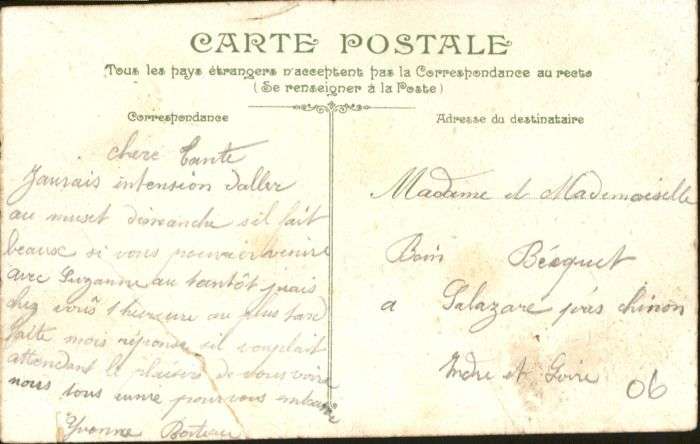 CARTE POSTALE
Tous les pays étrangers n'acceptent pas la Correspondance au recto
(Se renseigner à la Poste)
Correspondance
chere Tante
J'aurais intension d'aller
au muset dimanche s'il fait
beaux si vous pouvier venire
avec Suzanne au tantôt j'irais
chez vous 1 heure au plus tard
faite mois réponse sil vouplait
attendant le plaisir de vous voire
nous tous unire pour vous
Yvonne
Adresse du destinataire
Madame et Mademoiselle
Béequet
a Salazare près chinon
Indre et Loire
06